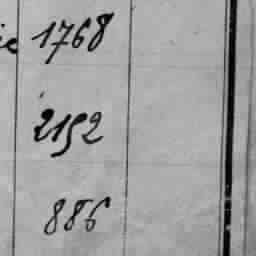 ie 1768
2192
886